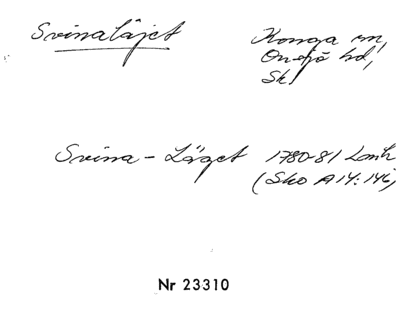 Svinaläjet
Konga sn,
Onsjö hd,
Sk
Svina-Läget 1780-81 Lmh
(Sko A14:146)
Nr 23310